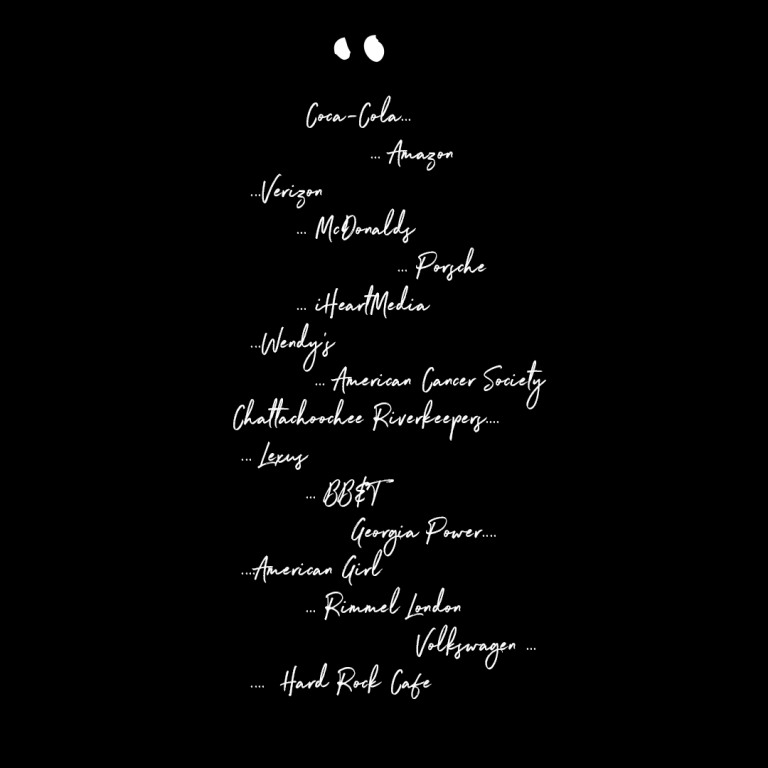 Coca-Cola...
... Amazon
...Verizon
... McDonalds
... Porsche
... iHeartMedia
...Wendy's
... American Cancer Society
Chattachoochee Riverkeepers....
... Lexus
... BB&T
Georgia Power....
....American Girl
... Rimmel London
Volkswagen ...
.... Hard Rock Cafe